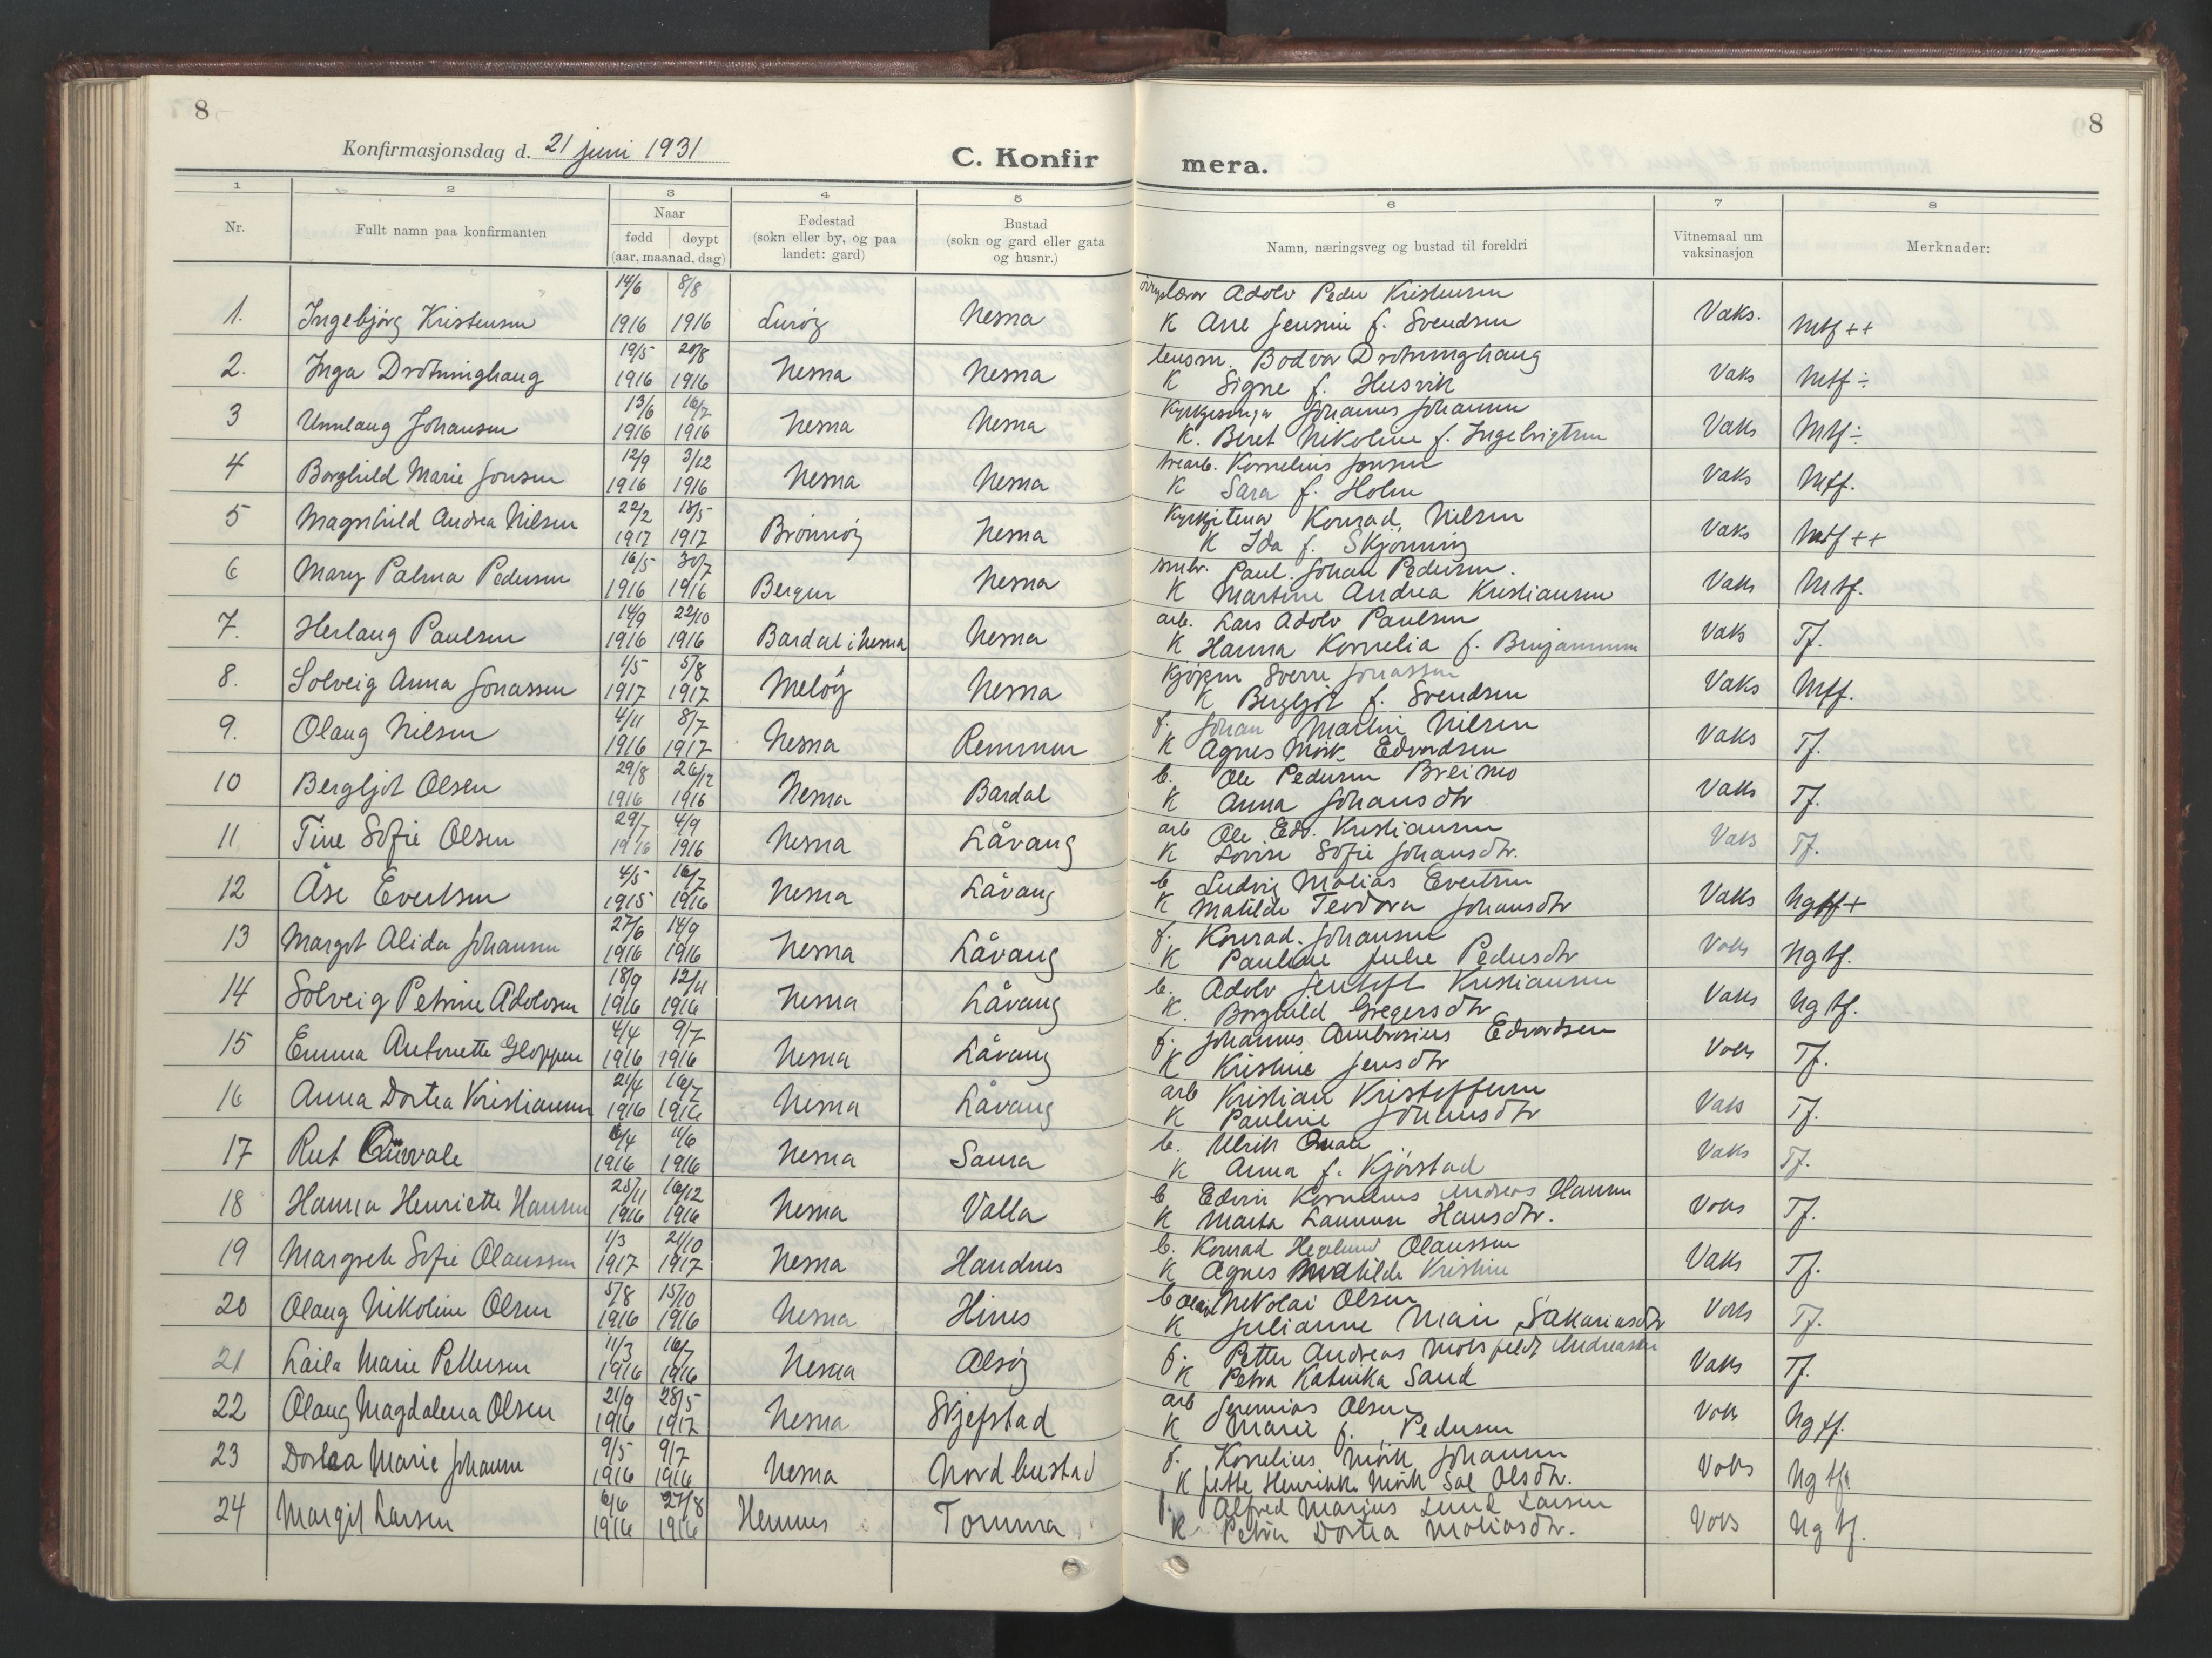 8
8
Konfirmasjonsdag d. 21 juni 1931
C. Konfir
mera.
1 2 3 4 5 6 7 8
Nr.
Fullt namn paa konfirmanten
Naar
fødd døypt
(aar, maanad, dag)
Fødestad
(sokn eller by, og paa
landet: gard)
Bustad
(sokn og gard eller gata
og husnr.)
Namn, næringsveg og bustad til foreldri
Vitnemaal um
vaksinasjon
Merknader:
14/6 8/8 Adolv Peder Kristensen
1. Ingebjörg Kristensen 1916 1916 Luröy Nesna K Ane Jensine f. Svendsen Vaks. Mtf ++
19/5 20/8 lensm. Bodvar Drotninghaug
2. Inga Drotninghaug 1916 1916 Nesna Nesna K Signe f. Husvik Vaks Mtf ÷
13/6 16/7 Kyrkjesongar Johannes Johansen
3 Unnlaug Johansen 1916 1916 Nesna Nesna K. Beret Nikoline f. Ingebrigtsen Vaks Mtf ÷
12/9 3/12 trearb. Kornelius Jonsen
4 Borghild Marie Jonsen 1916 1916 Nesna Nesna K Sara f. Holm Vaks Mtf.
22/2 13/5 Kyrkjetenar Konrad Nilsen
5 Magnhild Andrea Nilsen 1917 1917 Brönnöy Nesna K Ida f. Skjönning Vaks Mtf ++
16/5 30/7 Paul Johan Pedersen.
6 Mary Palma Pedersen 1916 1916 Bergen Nesna K Martine Andrea Kristiansen Vaks Mtf.
14/9 22/10 arb. Lars Adolv Paulsen
7. Herlaug Paulsen 1916 1916 Bardal i Nesna Nesna K Hanna Kornelia f. Benjaminsen Vaks Tf.
1/5 5/8 Kjöpm Sverre Jonassen
8. Solveig Anna Jonassen 1917 1917 Melöy Nesna K Bergljot f. Svendsen Vaks Mtf.
4/11 8/7 f. Johan Martin Nilsen
9. Olaug Nilsen 1916 1917 Nesna Remmen K Agnes Mörk Edvardsen Vaks Tf.
29/8 26/12 b. Ole Pedersen Breimo
10 Bergljot Olsen 1916 1916 Nesna Bardal K Anna Johansdtr Vaks Tf.
29/7 4/9 arb Ole Edv. Kristiansen
11 Tine Sofie Olsen 1916 1916 Nesna Låvang K Lovise Sofie Johansdtr. Vaks Tf.
4/5 16/7 b Ludvig Matias Evertsen
12 Åse Evertsen 1915 1916 Nesna Låvang K Matilde Teodora Johansdtr Vaks Ng tf +
27/6 14/9 f. Konrad Johansen
13 Margot Alida Johansen 1916 1916 Nesna Låvang K Pauline Julie Pedersdtr Vaks Ng tf.
18/9 12/11 b. Adolv Jentoft Kristiansen
14 Solveig Petrine Adolvsen 1916 1916 Nesna Låvang K. Borghild Gregersdtr Vaks Ng tf.
4/4 9/7 f. Johannes Ambrosius Edvardsen
15 Emma Antonette Gloppen 1916 1916 Nesna Låvang K Kristine Jensdtr Vaks Tf.
21/4 16/7 arb Kristian Kristoffersen
16 Anna Dortea Kristiansen 1916 1916 Nesna Låvang K Pauline Johansdtr Vaks Tf.
6/4 11/6 b. Ulrik
17 Rut 1916 1916 Nesna Saura K Anna f. Kjörstad Vaks Tf.
25/11 16/12 b Edvin Kornelius Andreas Hansen
18 Hanna Henriette Hansen 1916 1916 Nesna Valla K Marta Hansdtr. Vaks Tf.
1/3 21/10 b. Konrad Olaussen
19 Margrete Sofie Olaussen 1917 1917 Nesna Handnes K Agnes Matilde Kristine Vaks Tf.
5/8 15/10 b Nikolai Olsen
20 Olaug Nikoline Olsen 1916 1916 Nesna Hines K Julianne Marie Sakariasdtr Vaks Tf.
11/3 16/7 f. Petter Andreas Motsfeldt Andreassen
21 Laila Marie Pettersen 1916 1916 Nesna Alsöy K Petra Katinka Sand Vaks Tf.
21/9 28/5 arb Jeremias Olsen
22 Olaug Magdalena Olsen 1916 1917 Nesna Skjefstad K Marie f. Pedersen Vaks Ng tf.
9/5 9/7 f. Kornelius Mörk Johansen
23 Dortea Marie Johansen 1916 1916 Nesna Nordbustad K Jette Henrikke Mörk Sal Olsdtr. Vaks Ng tf.
6/6 27/8 f. Alfred Marius Lund Larsen
24 Margit Larsen 1916 1916 Hemnes Tomma K Petra Dortea Matiasdtr. Vaks Ng tf.